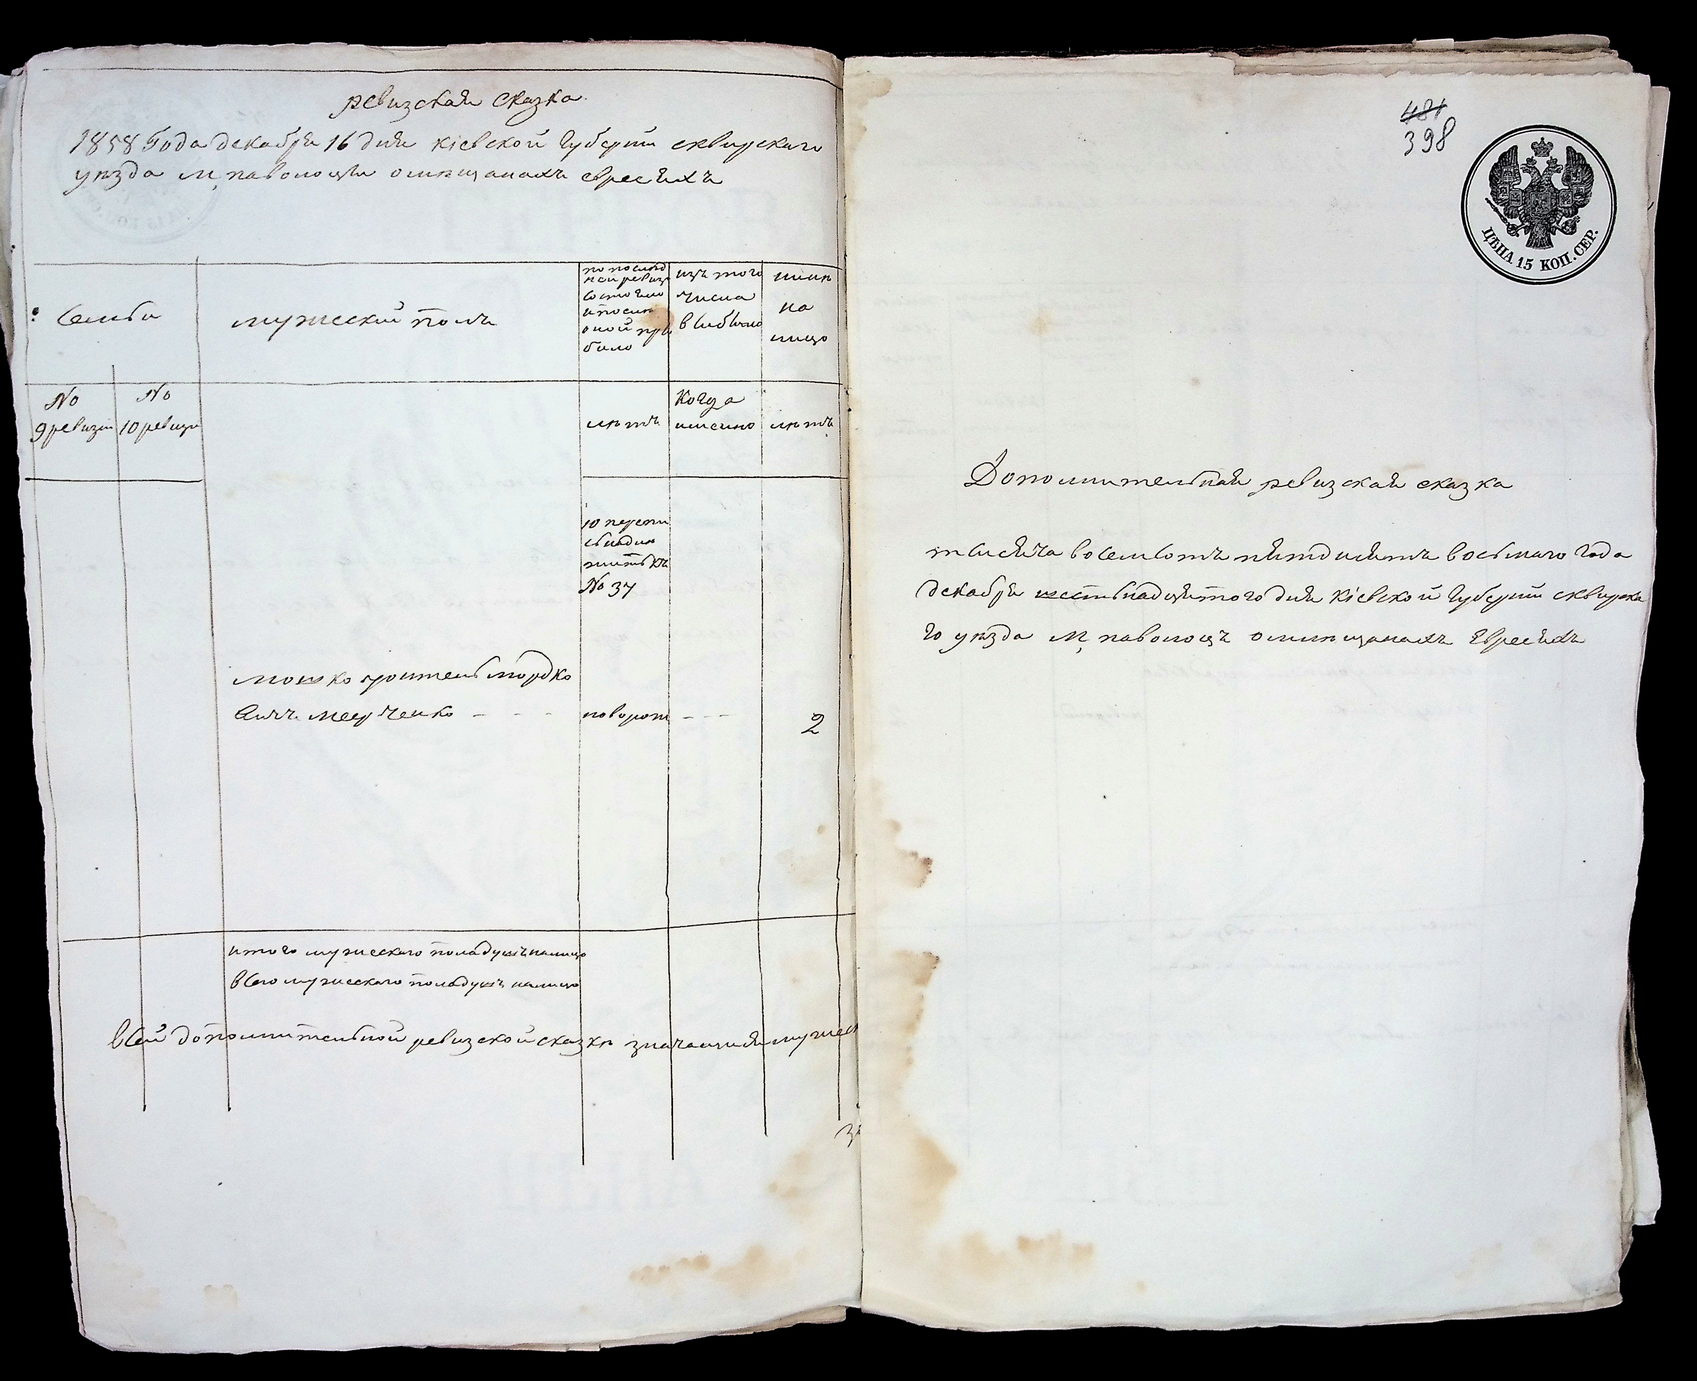 ревизская сказка
1858 Года декабря 16 дня кіевской Губерніи сквирскаго
уѣзда м, паволочи о мѣщанахъ евреяхъ
Семьи
мужескій полъ
по послѣд
ней ревизіи
состояло
и послѣ
оной при
было
изъ того
числа
выбыло
нынѣ
на
лицо
No
9 ревизіи
No
10 ревизіи
лѣтъ
Когда
именно
лѣтъ
10 перепи
No 37
мошко Мордко
повороч - - -
2
итого мужескаго пола душъ налицо
всего мужескаго пола душъ налицо
всей дополнительной ревизской сказкѣ значащіяся мужес
481
398
ЦѢНА 15 КОП. СЕР.
Дополнительная ревизская сказка
тысяча восемьсотъ пятдисятъ восьмаго года
декабря шестьнадцятого дня кіевской Губерніи сквирска
го уѣзда м, паволочъ о мѣщанахъ Евреяхъ